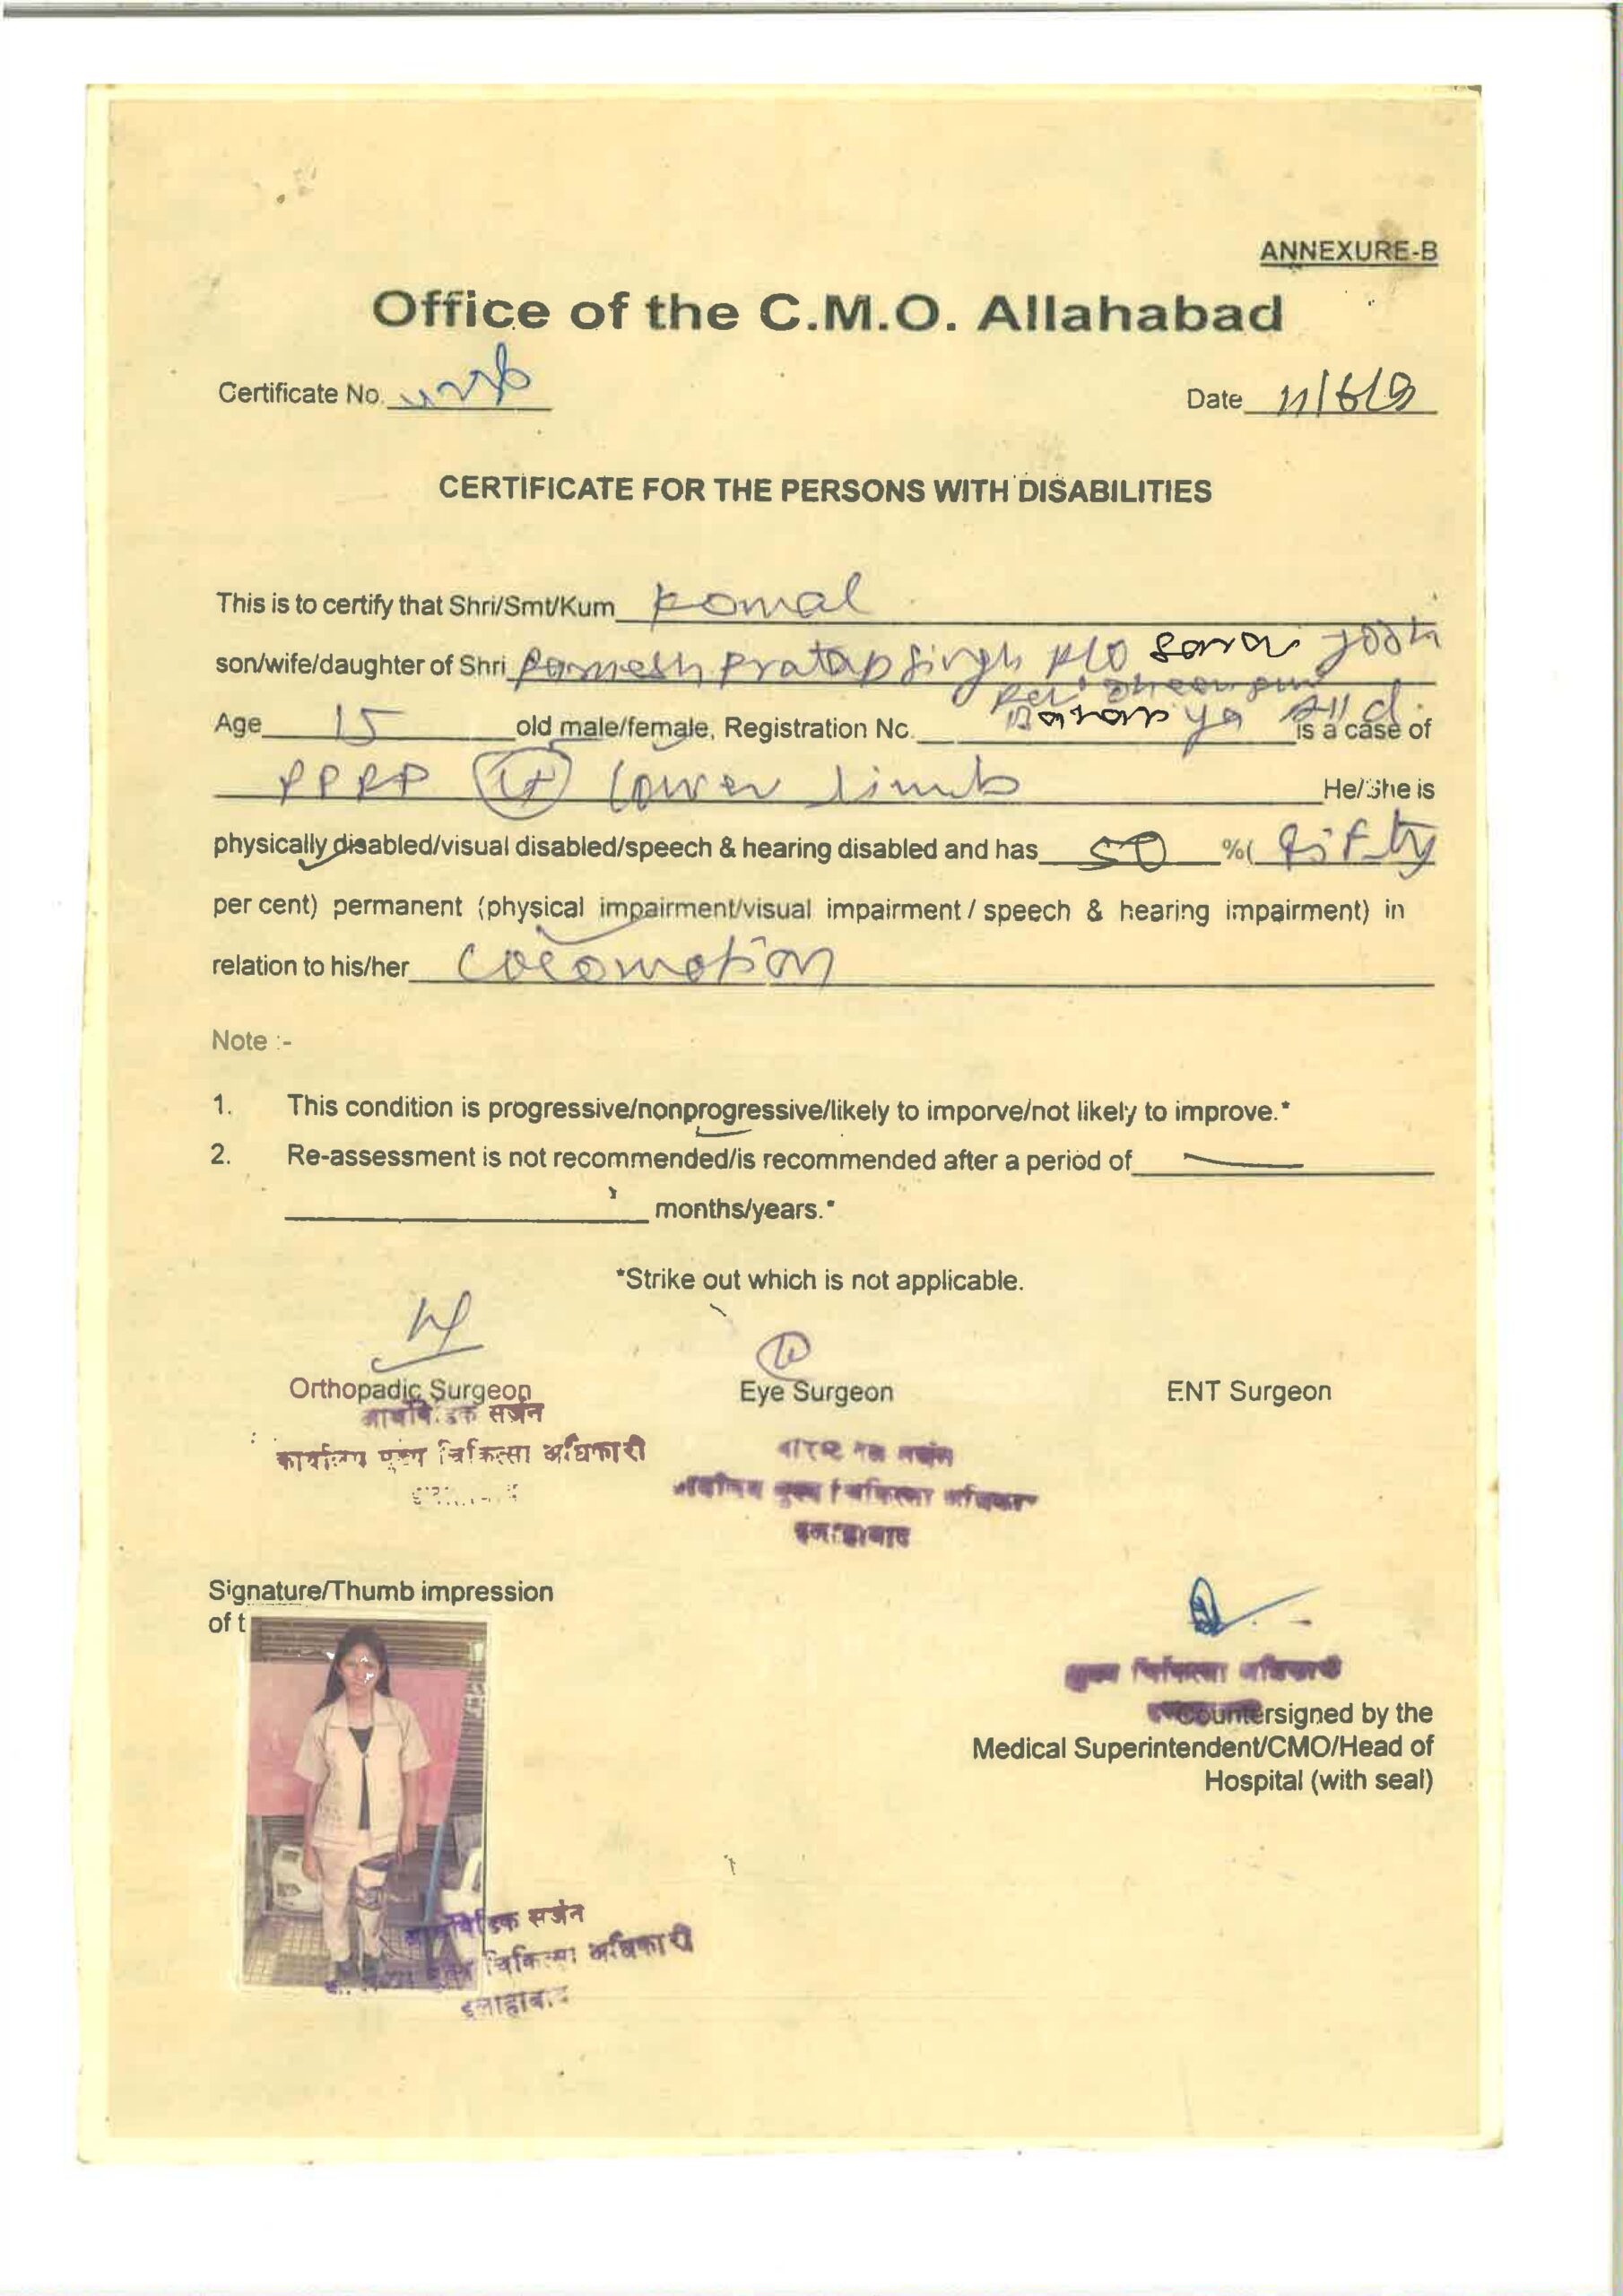 ANNEXURE-B
Office of the C.M.O. Allahabad
Certificate No.
Date 11/6/9
CERTIFICATE FOR THE PERSONS WITH DISABILITIES
This is to certify that Shri/Smt/Kum Komal
son/wife/daughter of Shri Pratap Singh
Age 15 old male/female, Registration Nc. is a case of
PPRP Lower Limb He/She is
physically disabled/visual disabled/speech & hearing disabled and has 50 %( fifty
per cent) permanent (physical impairment/visual impairment / speech & hearing impairment) in
relation to his/her Locomotion
Note :-
1. This condition is progressive/nonprogressive/likely to imporve/not likely to improve.*
2. Re-assessment is not recommended/is recommended after a period of
months/years.*
*Strike out which is not applicable.
Orthopadic Surgeon Eye Surgeon ENT Surgeon
सर्जन
चिकित्सा अधिकारी
इलाहाबाद
Signature/Thumb impression
of t
Countersigned by the
Medical Superintendent/CMO/Head of
Hospital (with seal)
सर्जन
चिकित्सा अधिकारी
इलाहाबाद